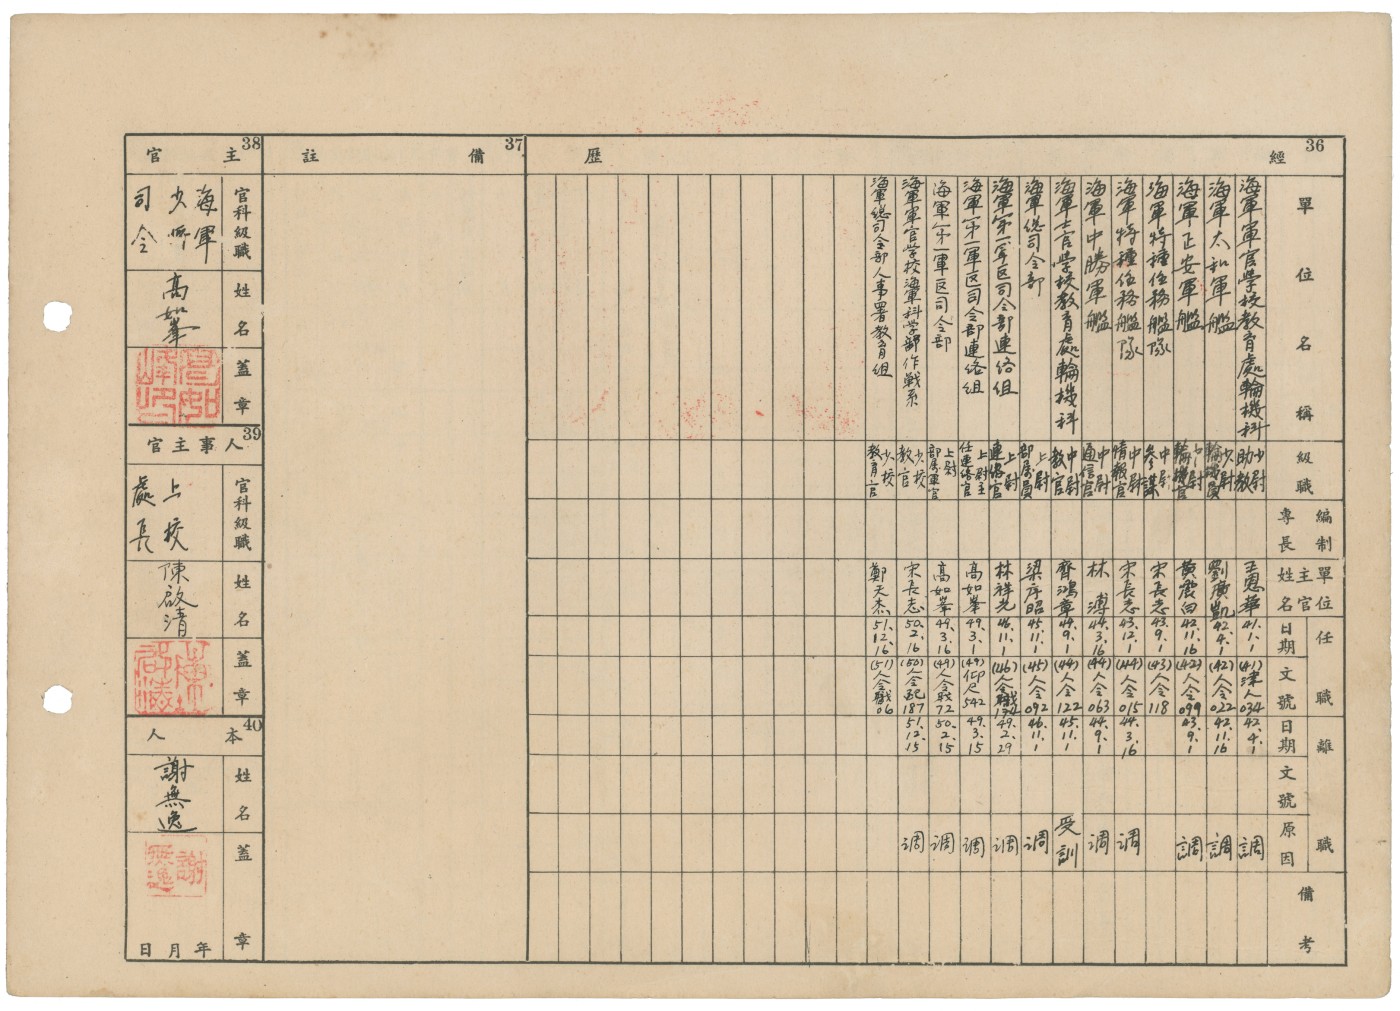 36 經歷
單位名稱
級職
編制專長
單位主官姓名
任職
日期
文號
離職
日期
文號
原因
備考
海軍軍官學校教育處輪機科 少尉助教 王恩華 41.1.1 (41)津人034 42.4.1 調
海軍太和軍艦 少尉輪機員 劉廣凱 42.4.1 (42)人令022 42.11.16 調
海軍正安軍艦 中尉輪機官 黃震白 42.11.16 (42)人令099 43.9.1 調
海軍特種任務艦隊 中尉參謀 宋長志 43.9.1 (43)人令118
海軍特種任務艦隊 中尉情報官 宋長志 43.12.1 (44)人令015 44.3.16 調
海軍中勝軍艦 中尉通信官 林溥 44.3.16 (44)人令063 44.9.1 調
海軍士官學校教育處輪機科 中尉教官 齊鴻章 44.9.1 (44)人令122 45.11.1 受訓
海軍總司令部 上尉部屬員 梁序昭 45.11.1 (45)人令092 46.11.1 調
海軍第一軍区司令部連絡組 上尉連絡官 林祥光 46.11.1 (46)人令職 49.2.29 調
海軍第一軍区司令部連絡組 上尉主任連絡官 高如峯 49.3.1 (49)仰人542 49.3.15 調
海軍第一軍区司令部 上尉部屬軍官 高如峯 49.3.16 (49)人令戰72 50.2.15 調
海軍軍官学校海軍科学部作戰系 少校教官 宋長志 50.2.16 (50)人令紀187 51.12.15 調
海軍總司令部人事署教育組 少校教育官 鄭天杰 51.12.16 (51)人令職06
37 備註
38 主官
官科級職
海軍少將司令
姓名
高如峯
蓋章
高如峰印
39 人事主官
官科級職
上校處長
姓名
陳啟清
蓋章
40 本人
姓名
謝無逸
蓋章
謝無逸
年月日